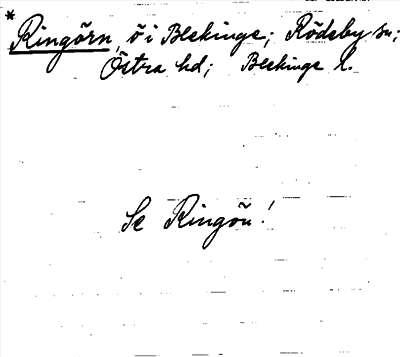 * Ringörn, ö i Blekinge; Rödeby sn;
Östra hd; Blekinge l.
Se Ringön!